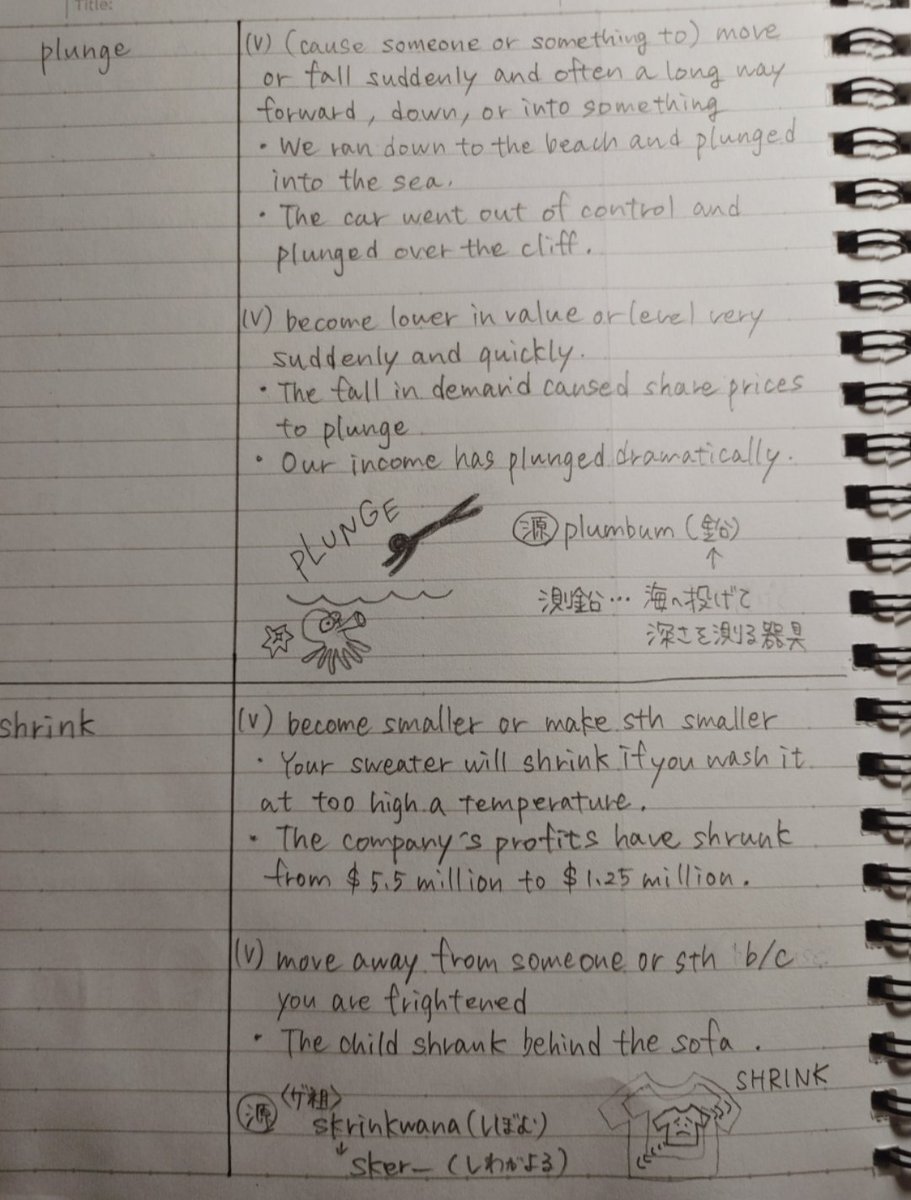 Title:
plunge
(v) (cause someone or something to) move
or fall suddenly and often a long way
forward, down, or into something
・We ran down to the beach and plunged
into the sea.
・The car went out of control and
plunged over the cliff.
(v) become lower in value or level very
suddenly and quickly.
・The fall in demand caused share prices
to plunge
・Our income has plunged dramatically.
PLUNGE
源 plumbum (鉛)
↑
測鉛… 海へ投げて
深さを測る器具
shrink
(v) become smaller or make sth smaller
・Your sweater will shrink if you wash it
at too high a temperature.
・The company's profits have shrunk
from $5.5 million to $1.25 million.
(v) move away from someone or sth b/c
you are frightened
・The child shrank behind the sofa.
SHRINK
〈ゲ祖〉
源 skrinkwana (しぼむ)
↓
sker— (しわがよる)